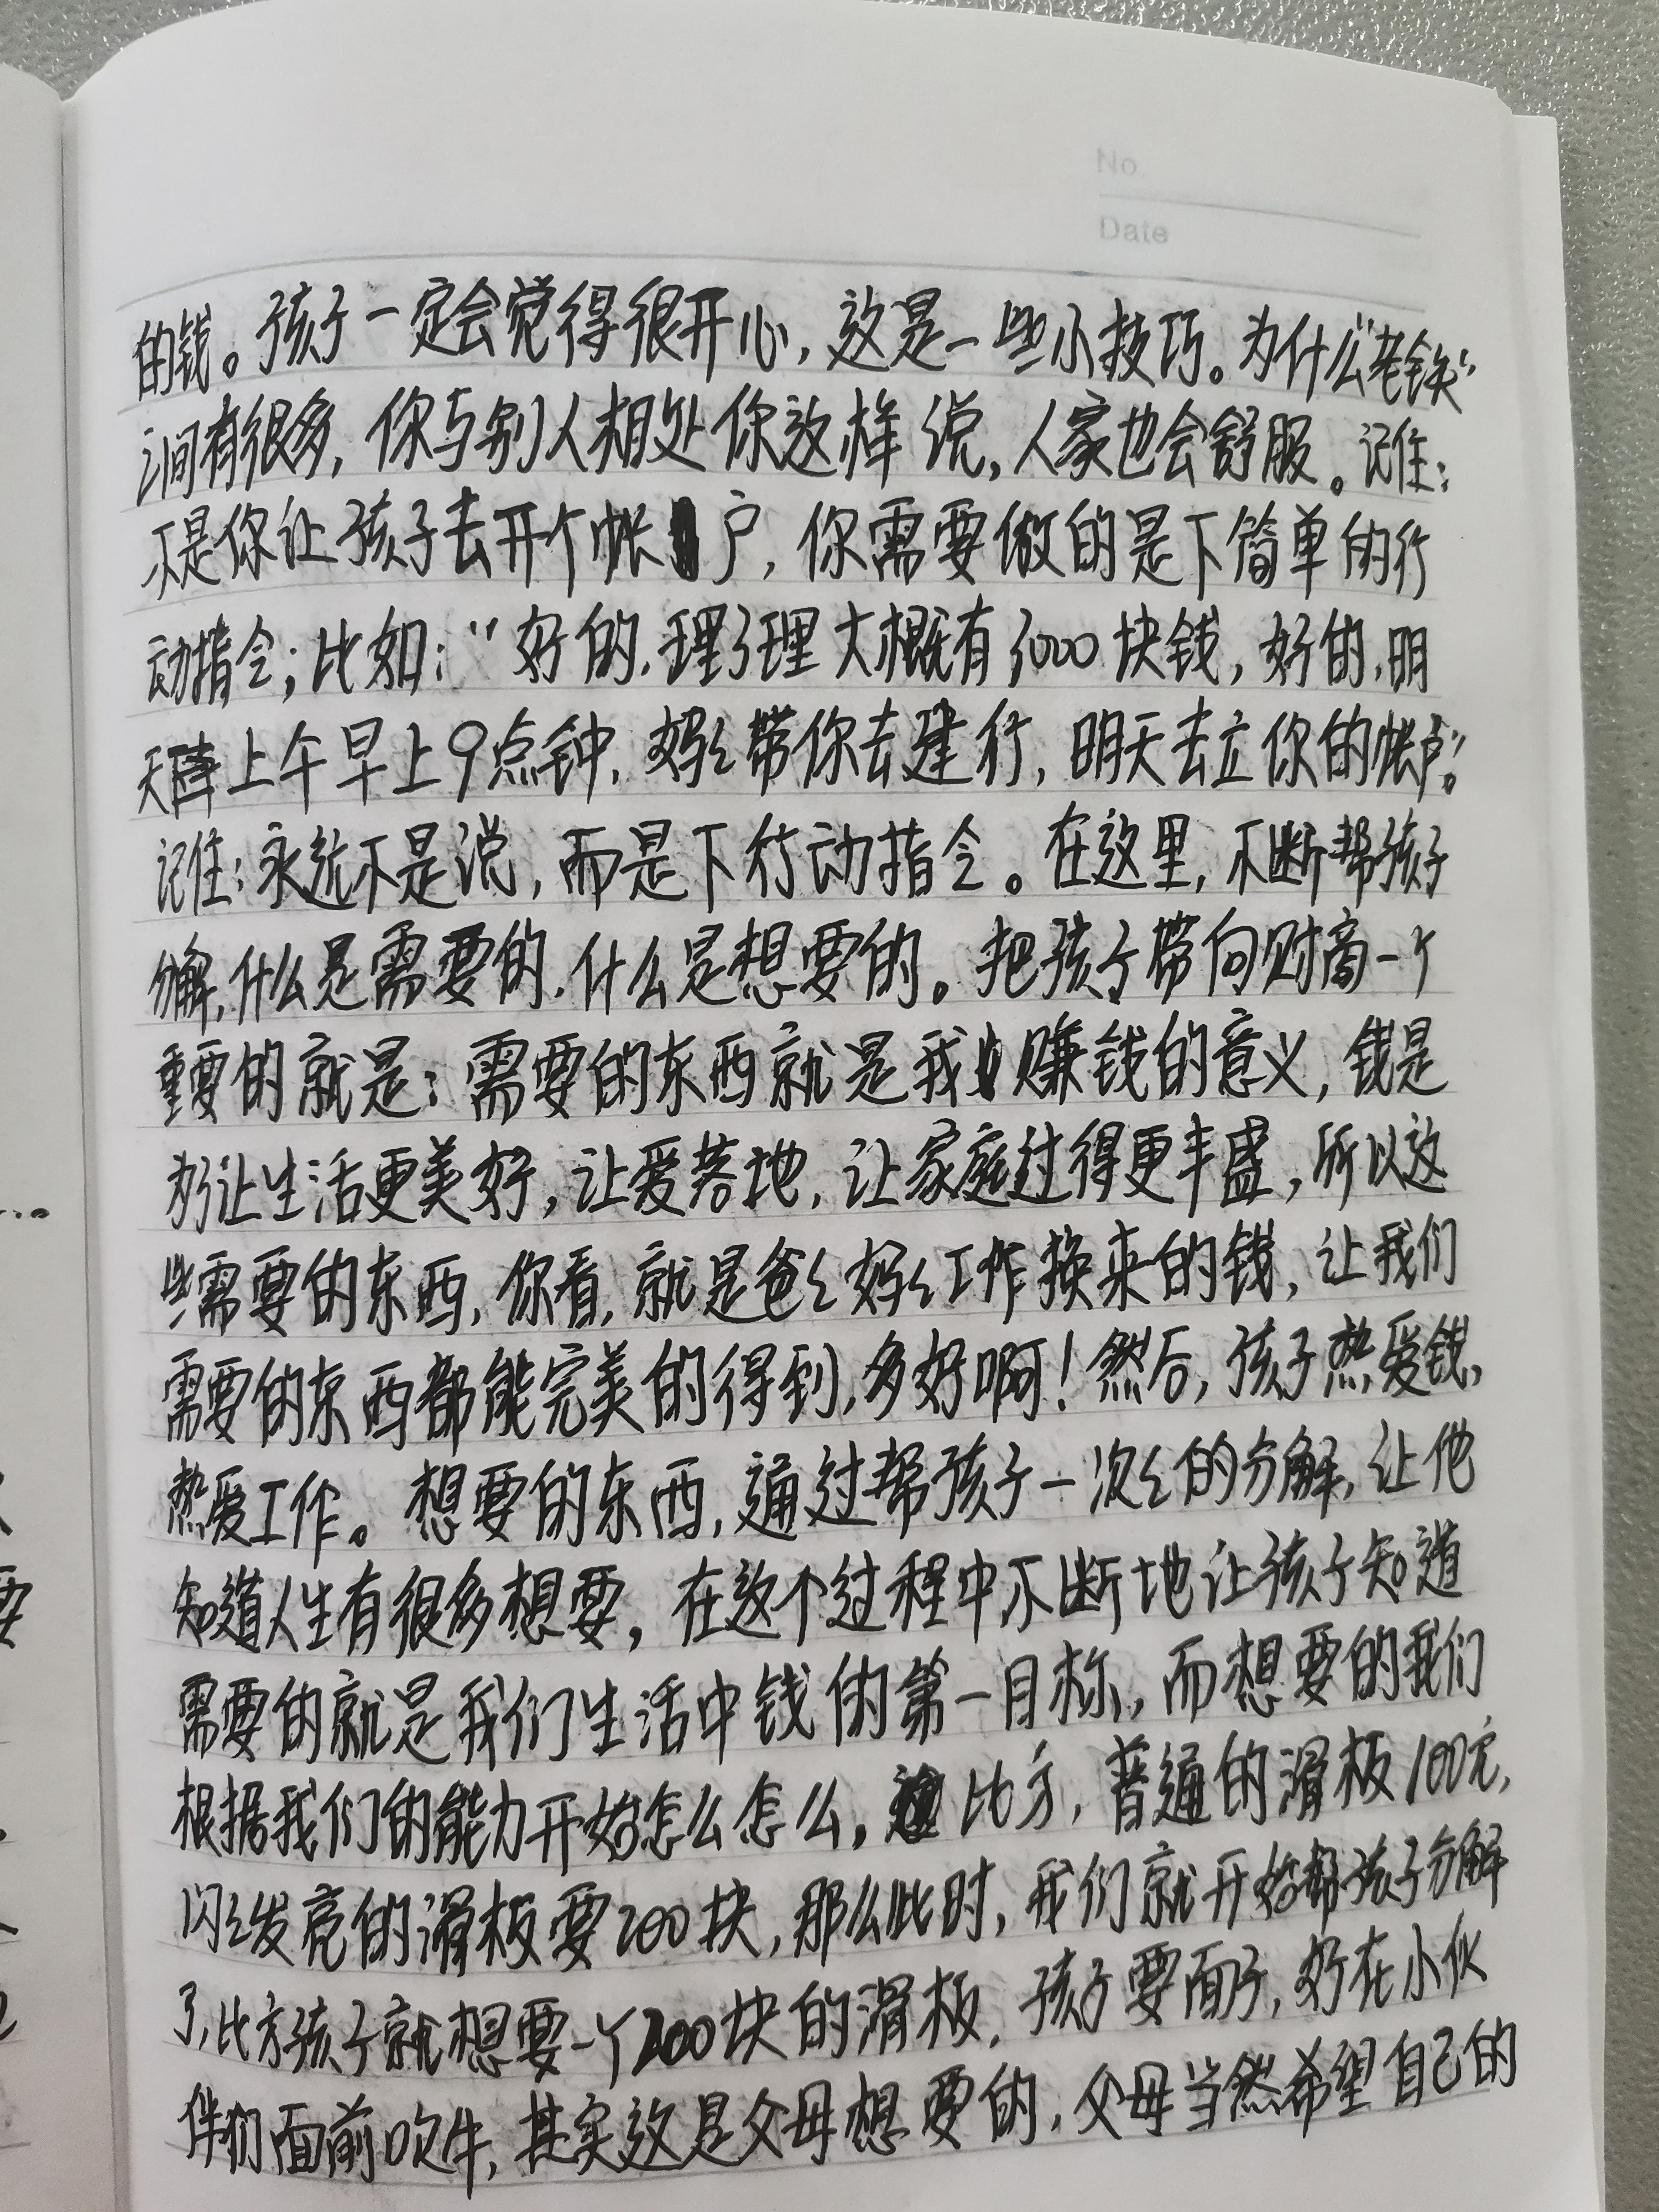 No
Date
的钱。孩子一定会觉得很开心,这是一些小技巧。为什么“老铁”
之间有很多,你与别人相处你这样说,人家也会舒服。记住:
不是你让孩子去开个帐户,你需要做的是下简单的行
动指令;比如:“好的,理了理大概有3000块钱,好的,明
天上午早上9点钟,妈妈带你去建行,明天去立你的帐户”。
记住:永远不是说,而是下行动指令。在这里,不断帮孩子
分解,什么是需要的,什么是想要的。把孩子带向财商一个
重要的就是:需要的东西就是我们赚钱的意义,钱是
为了让生活更美好,让爱落地,让家庭过得更丰盛,所以这
些需要的东西,你看,就是爸爸妈妈工作换来的钱,让我们
需要的东西都能完美的得到,多好啊!然后,孩子热爱钱,
热爱工作。想要的东西,通过帮孩子一次次的分解,让他
知道人生有很多想要,在这个过程中不断地让孩子知道
需要的就是我们生活中钱的第一目标,而想要的我们
根据我们的能力开始怎么怎么,比方,普通的滑板100元,
闪闪发亮的滑板要200块,那么此时,我们就开始帮孩子分解
了,比方孩子就想要一个200块的滑板,孩子要面子,好在小伙
伴们面前吹牛,其实这是父母想要的,父母当然希望自己的